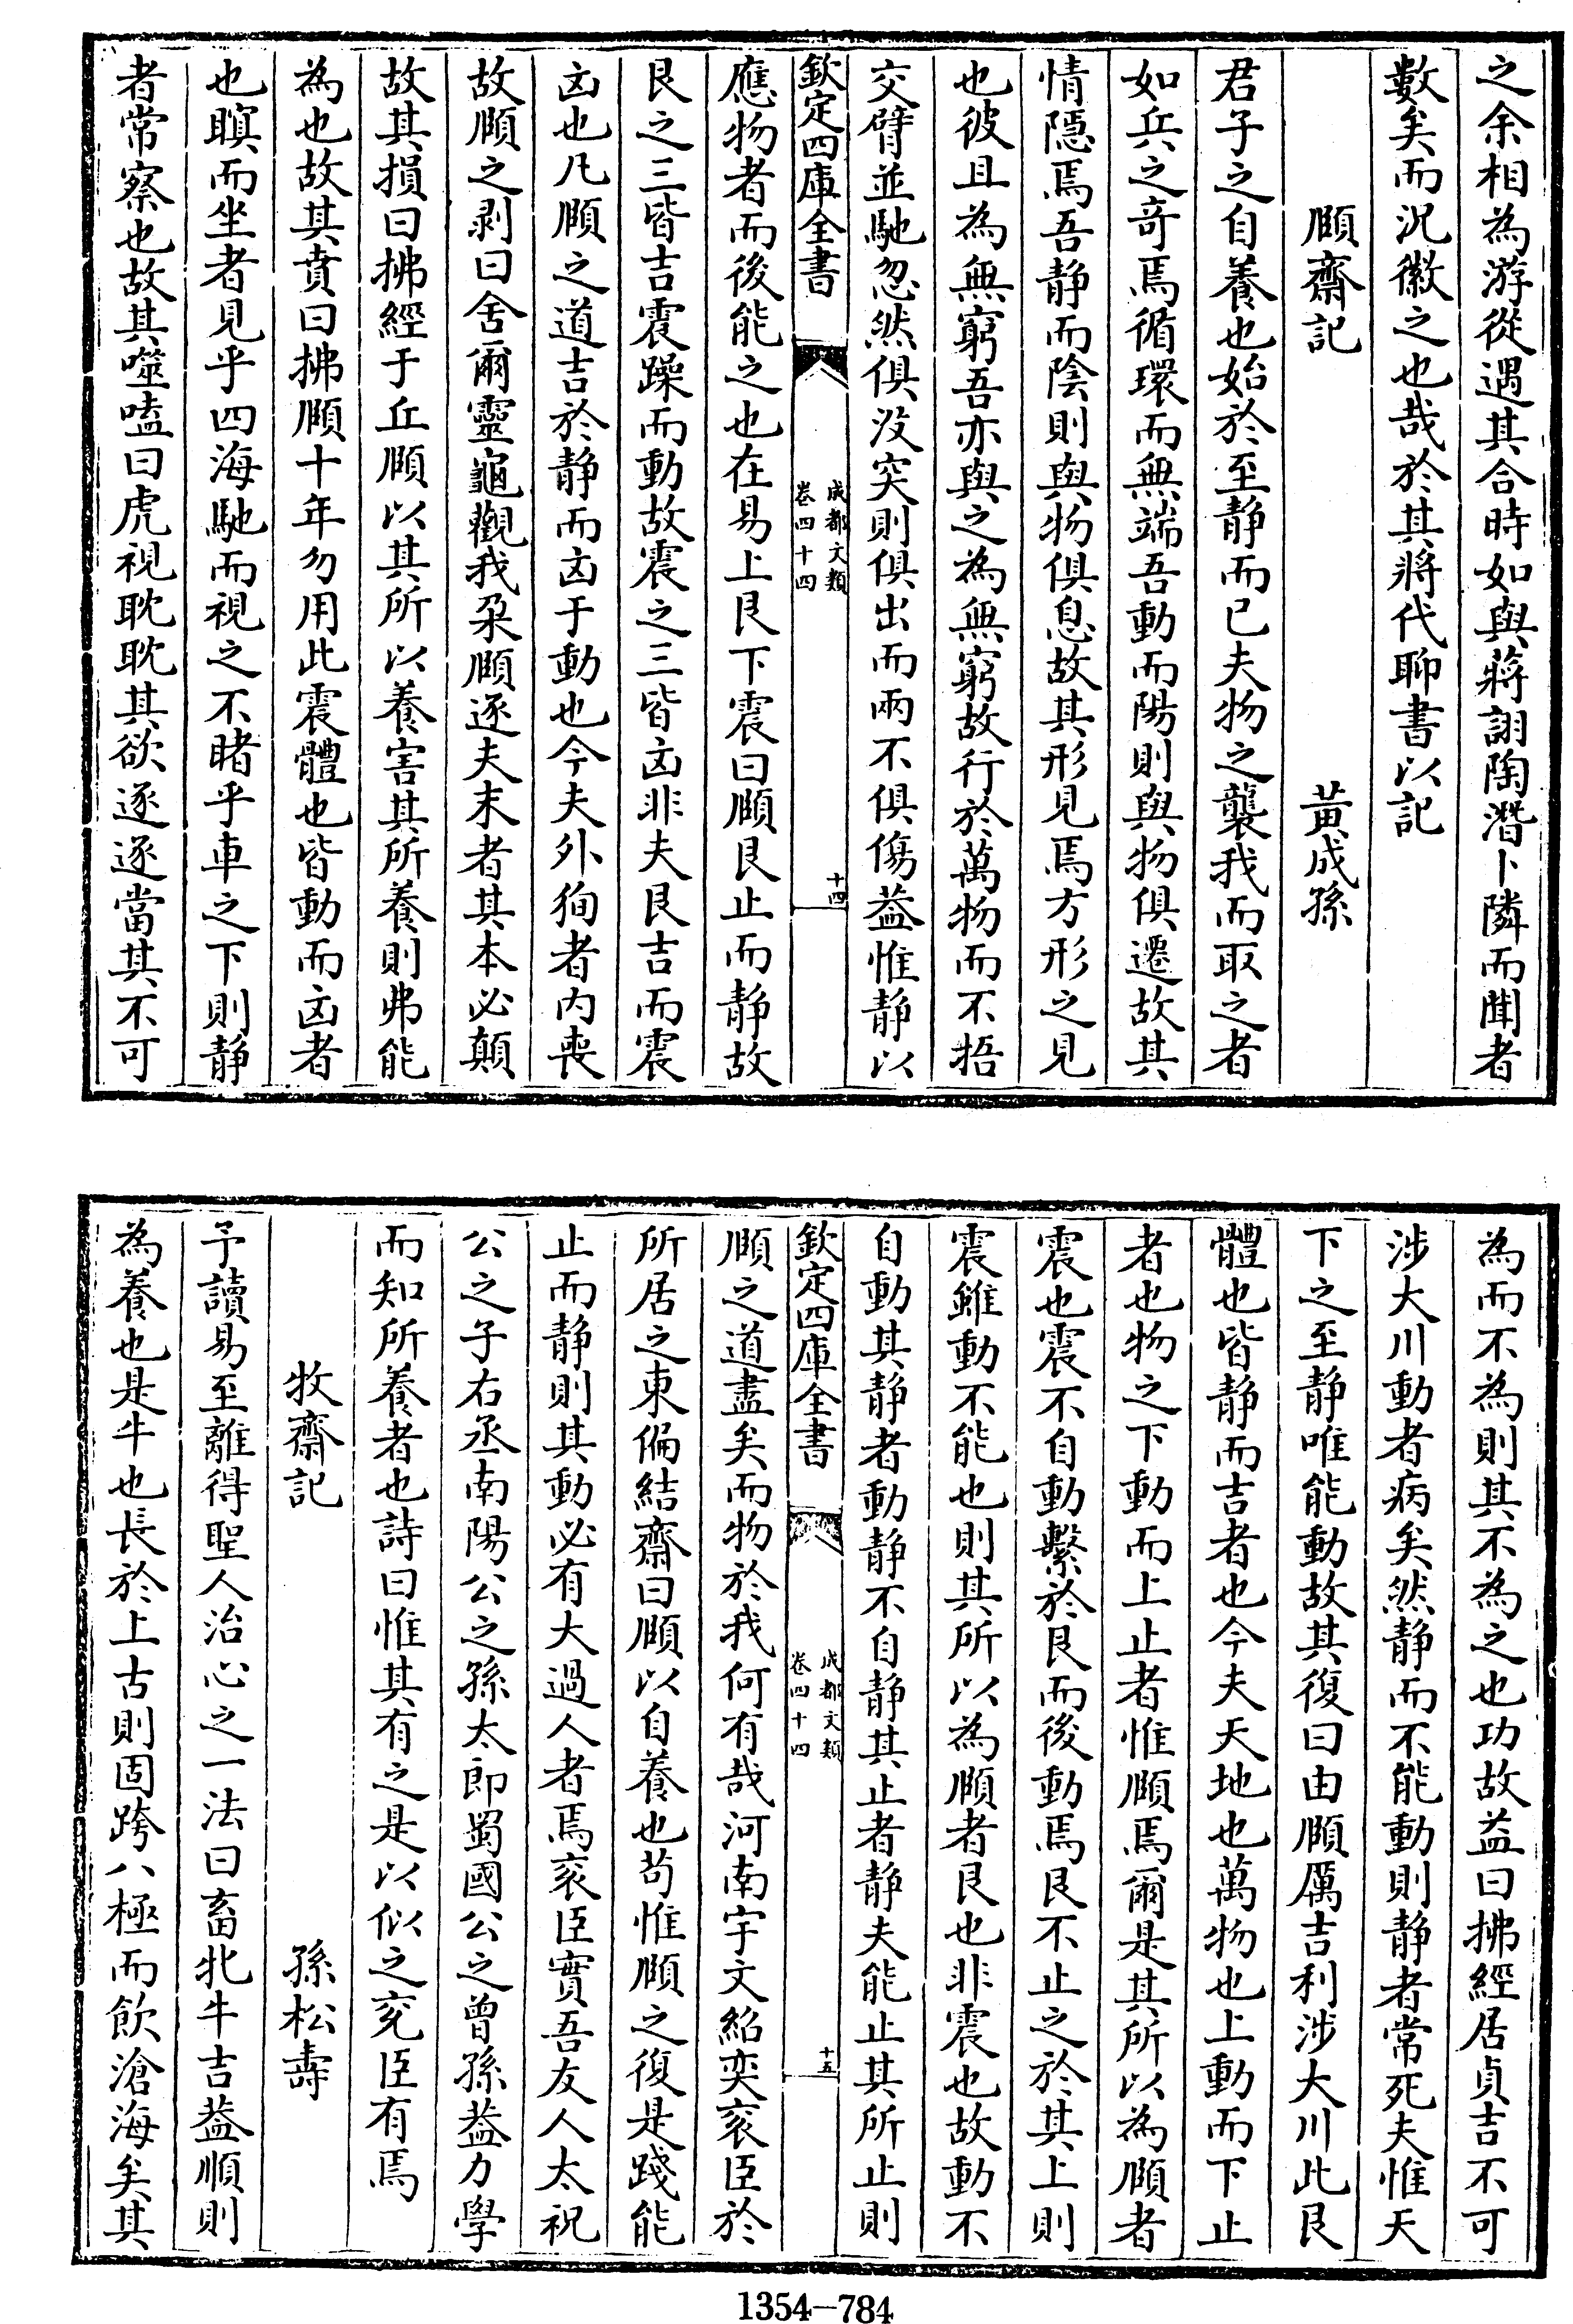 之余相為游從遇其合時如與蔣詡陶潛卜隣而聞者
數矣而況徽之也哉於其將代聊書以記
頤齋記 黃成孫
君子之自養也始於至静而已夫物之襲我而取之者
如兵之竒焉循環而無端吾動而陽則與物俱遷故其
情隱焉吾静而陰則與物俱息故其形見焉方形之見
也彼且為無窮吾亦與之為無窮故行於萬物而不捂
交臂並馳忽然俱沒突則俱出而兩不俱傷葢惟静以
欽定四庫全書
成都文類
卷四十四
十四
應物者而後能之也在易上艮下震曰頤艮止而静故
艮之三皆吉震躁而動故震之三皆凶非夫艮吉而震
凶也凡頤之道吉於静而凶于動也今夫外狥者内喪
故頤之剥曰舍爾靈龜觀我朶頤逐夫末者其本必顛
故其損曰拂經于丘頤以其所以養害其所養則弗能
為也故其賁曰拂頤十年勿用此震體也皆動而凶者
也瞑而坐者見乎四海馳而視之不睹乎車之下則静
者常察也故其噬嗑曰虎視耽耽其欲逐逐當其不可
為而不為則其不為之也功故益曰拂經居貞吉不可
涉大川動者病矣然静而不能動則静者常死夫惟天
下之至静唯能動故其復曰由頤厲吉利涉大川此艮
體也皆静而吉者也今夫天地也萬物也上動而下止
者也物之下動而上止者惟頤焉爾是其所以為頤者
震也震不自動繫於艮而後動焉艮不止之於其上則
震雖動不能也則其所以為頤者艮也非震也故動不
自動其静者動静不自静其止者静夫能止其所止則
欽定四庫全書
成都文類
卷四十四
十五
頤之道盡矣而物於我何有哉河南宇文紹奕衮臣於
所居之東偏結齋曰頤以自養也苟惟頤之復是踐能
止而静則其動必有大過人者焉衮臣實吾友人太祝
公之子右丞南陽公之孫太師蜀國公之曾孫葢力學
而知所養者也詩曰惟其有之是以似之兖臣有焉
牧齋記 孫松壽
予讀易至離得聖人治心之一法曰畜牝牛吉葢順則
為養也是牛也長於上古則固跨八極而飲滄海矣其
1354—784